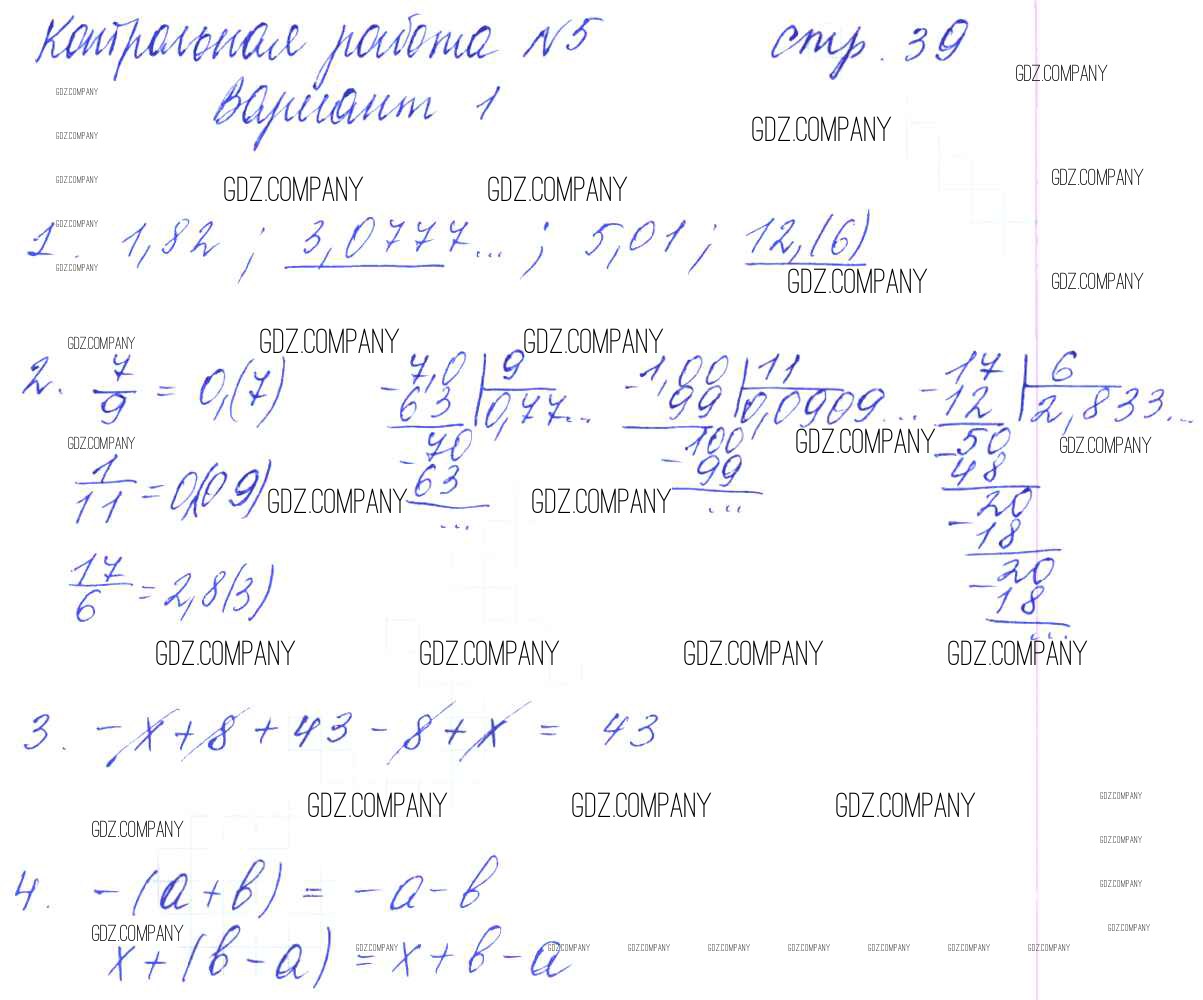 Контрольная работа №5 стр. 39
GDZ.COMPANY
GDZ.COMPANY
Вариант 1
GDZ.COMPANY
GDZ.COMPANY
GDZ.COMPANY
GDZ.COMPANY GDZ.COMPANY GDZ.COMPANY
GDZ.COMPANY
1. 1,82 ; 3,0777... ; 5,01 ; 12,(6)
GDZ.COMPANY GDZ.COMPANY GDZ.COMPANY
GDZ.COMPANY GDZ.COMPANY GDZ.COMPANY
2. 7/9 = 0,(7) -7,0 | 9 -1,00 | 11 -17 | 6
63 0,77... 99 0,0909... 12 2,833...
GDZ.COMPANY -70 100 GDZ.COMPANY -50 GDZ.COMPANY
1/11 = 0,(09) GDZ.COMPANY 63 GDZ.COMPANY -99 48
... ... -20
18
17/6 = 2,8(3) -20
18
...
GDZ.COMPANY GDZ.COMPANY GDZ.COMPANY GDZ.COMPANY
3. -x+8+43-8+x = 43
GDZ.COMPANY GDZ.COMPANY GDZ.COMPANY GDZ.COMPANY
GDZ.COMPANY
GDZ.COMPANY
4. -(a+b) = -a-b GDZ.COMPANY
GDZ.COMPANY GDZ.COMPANY
x+(b-a) = x+b-a
GDZ.COMPANY GDZ.COMPANY GDZ.COMPANY GDZ.COMPANY GDZ.COMPANY GDZ.COMPANY GDZ.COMPANY GDZ.COMPANY GDZ.COMPANY